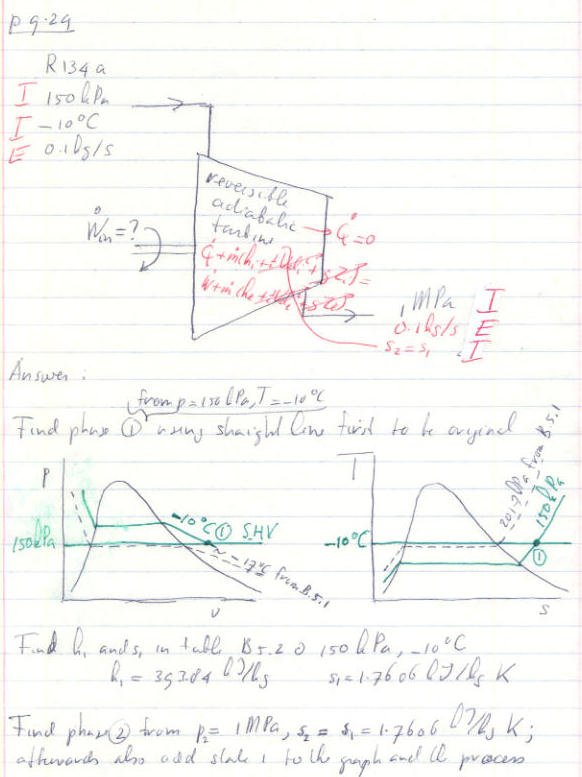 p 9.29
R134a
I 150 kPa
I -10°C
E 0.1 kg/s
reversible
adiabatic
turbine
Ẇin = ?
Q̇ = 0
1 MPa I
0.1 kg/s E
s₂ = s₁ I
Answer:
from p = 150 kPa, T = -10°C
Find phase ① using straight line first to be original
P
150 kPa
-10°C ① SHV
~ -17°C from B.5.1
v
T
-10°C
201.7 kPa from B.5.1
150 kPa
①
s
Find h₁ and s₁ in table B5.2 @ 150 kPa, -10°C
h₁ = 393.84 kJ/kg s₁ = 1.7606 kJ/kg K
Find phase ② from p₂ = 1 MPa, s₂ = s₁ = 1.7606 kJ/kg K;
afterwards also add state 1 to the graph and the process